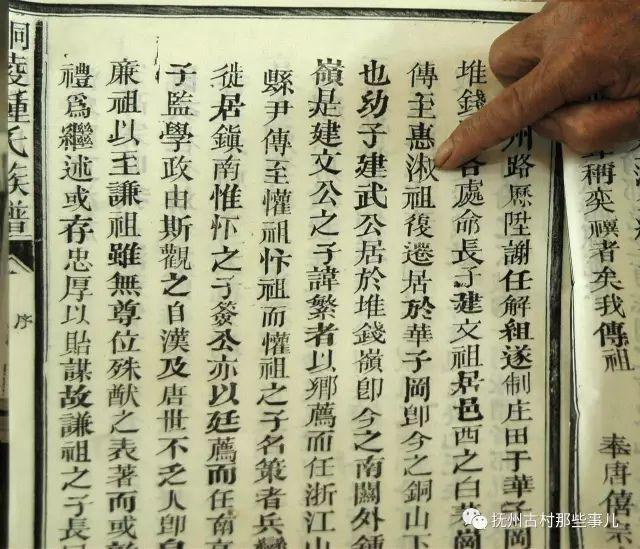 稱奕禩者矣我傳祖
奉唐僖宗
州路歷陞謝任解組遂制庄田于華子岡
堆錢各處命長子建文祖居邑西之白
傳至惠淑祖復遷居於華子岡卽今之銅山下
也幼子建武公居於堆錢嶺卽今之南關外鍾
嶺是建文公之子諱繁者以鄉薦而任浙江山
縣尹傳至懽祖忭祖而懽祖之子名策者兵
徙居鎮南惟忭之子簽公亦以廷薦而任南
子監學政由斯觀之自漢及唐世不乏人卽
廉祖以至謙祖雖無尊位殊猷之表著而或
禮爲繼述或存忠厚以貽謀故謙祖之子長
陵鍾氏族譜
序
抚州古村那些事儿